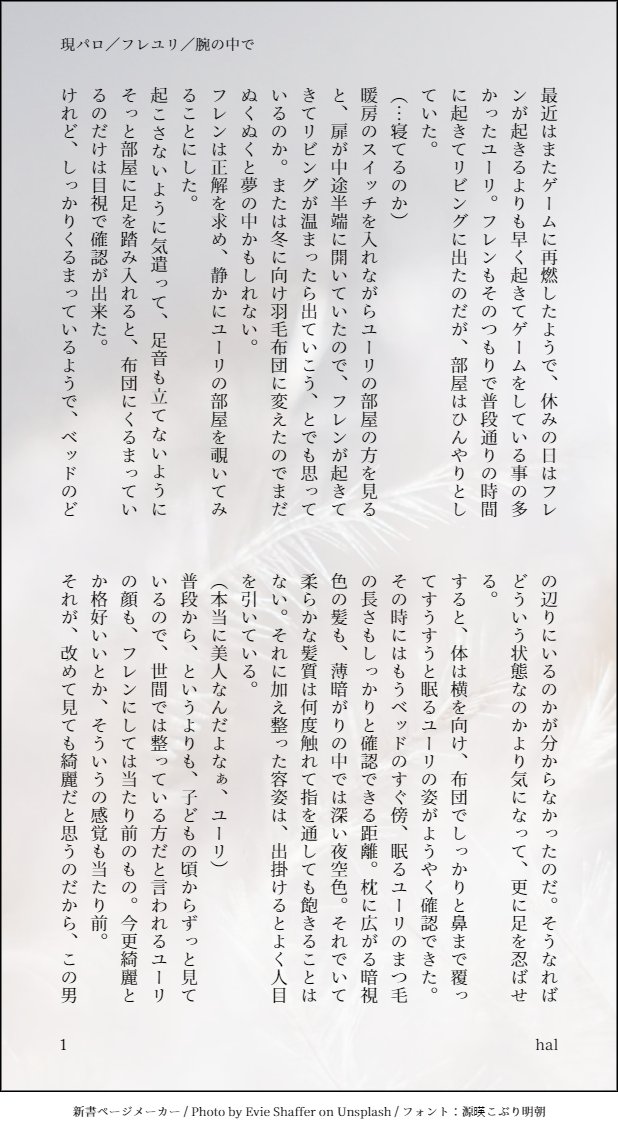 現パロ／フレユリ／腕の中で
最近はまたゲームに再燃したようで、休みの日はフレ
ンが起きるよりも早く起きてゲームをしている事の多
かったユーリ。フレンもそのつもりで普段通りの時間
に起きてリビングに出たのだが、部屋はひんやりとし
ていた。
（…寝てるのか）
暖房のスイッチを入れながらユーリの部屋の方を見る
と、扉が中途半端に開いていたので、フレンが起きて
きてリビングが温まったら出ていこう、とでも思って
いるのか。または冬に向け羽毛布団に変えたのでまだ
ぬくぬくと夢の中かもしれない。
フレンは正解を求め、静かにユーリの部屋を覗いてみ
ることにした。
起こさないように気遣って、足音も立てないように
そっと部屋に足を踏み入れると、布団にくるまってい
るのだけは目視で確認が出来た。
けれど、しっかりくるまっているようで、ベッドのど
の辺りにいるのかが分からなかったのだ。そうなれば
どういう状態なのかより気になって、更に足を忍ばせ
る。
すると、体は横を向け、布団でしっかりと鼻まで覆っ
てすうすうと眠るユーリの姿がようやく確認できた。
その時にはもうベッドのすぐ傍、眠るユーリのまつ毛
の長さもしっかりと確認できる距離。枕に広がる暗視
色の髪も、薄暗がりの中では深い夜空色。それでいて
柔らかな髪質は何度触れて指を通しても飽きることは
ない。それに加え整った容姿は、出掛けるとよく人目
を引いている。
（本当に美人なんだよなぁ、ユーリ）
普段から、というよりも、子どもの頃からずっと見て
いるので、世間では整っている方だと言われるユーリ
の顔も、フレンにしては当たり前のもの。今更綺麗と
か格好いいとか、そういうの感覚も当たり前。
それが、改めて見ても綺麗だと思うのだから、この男
1
hal
新書ページメーカー / Photo by Evie Shaffer on Unsplash / フォント：源暎こぶり明朝